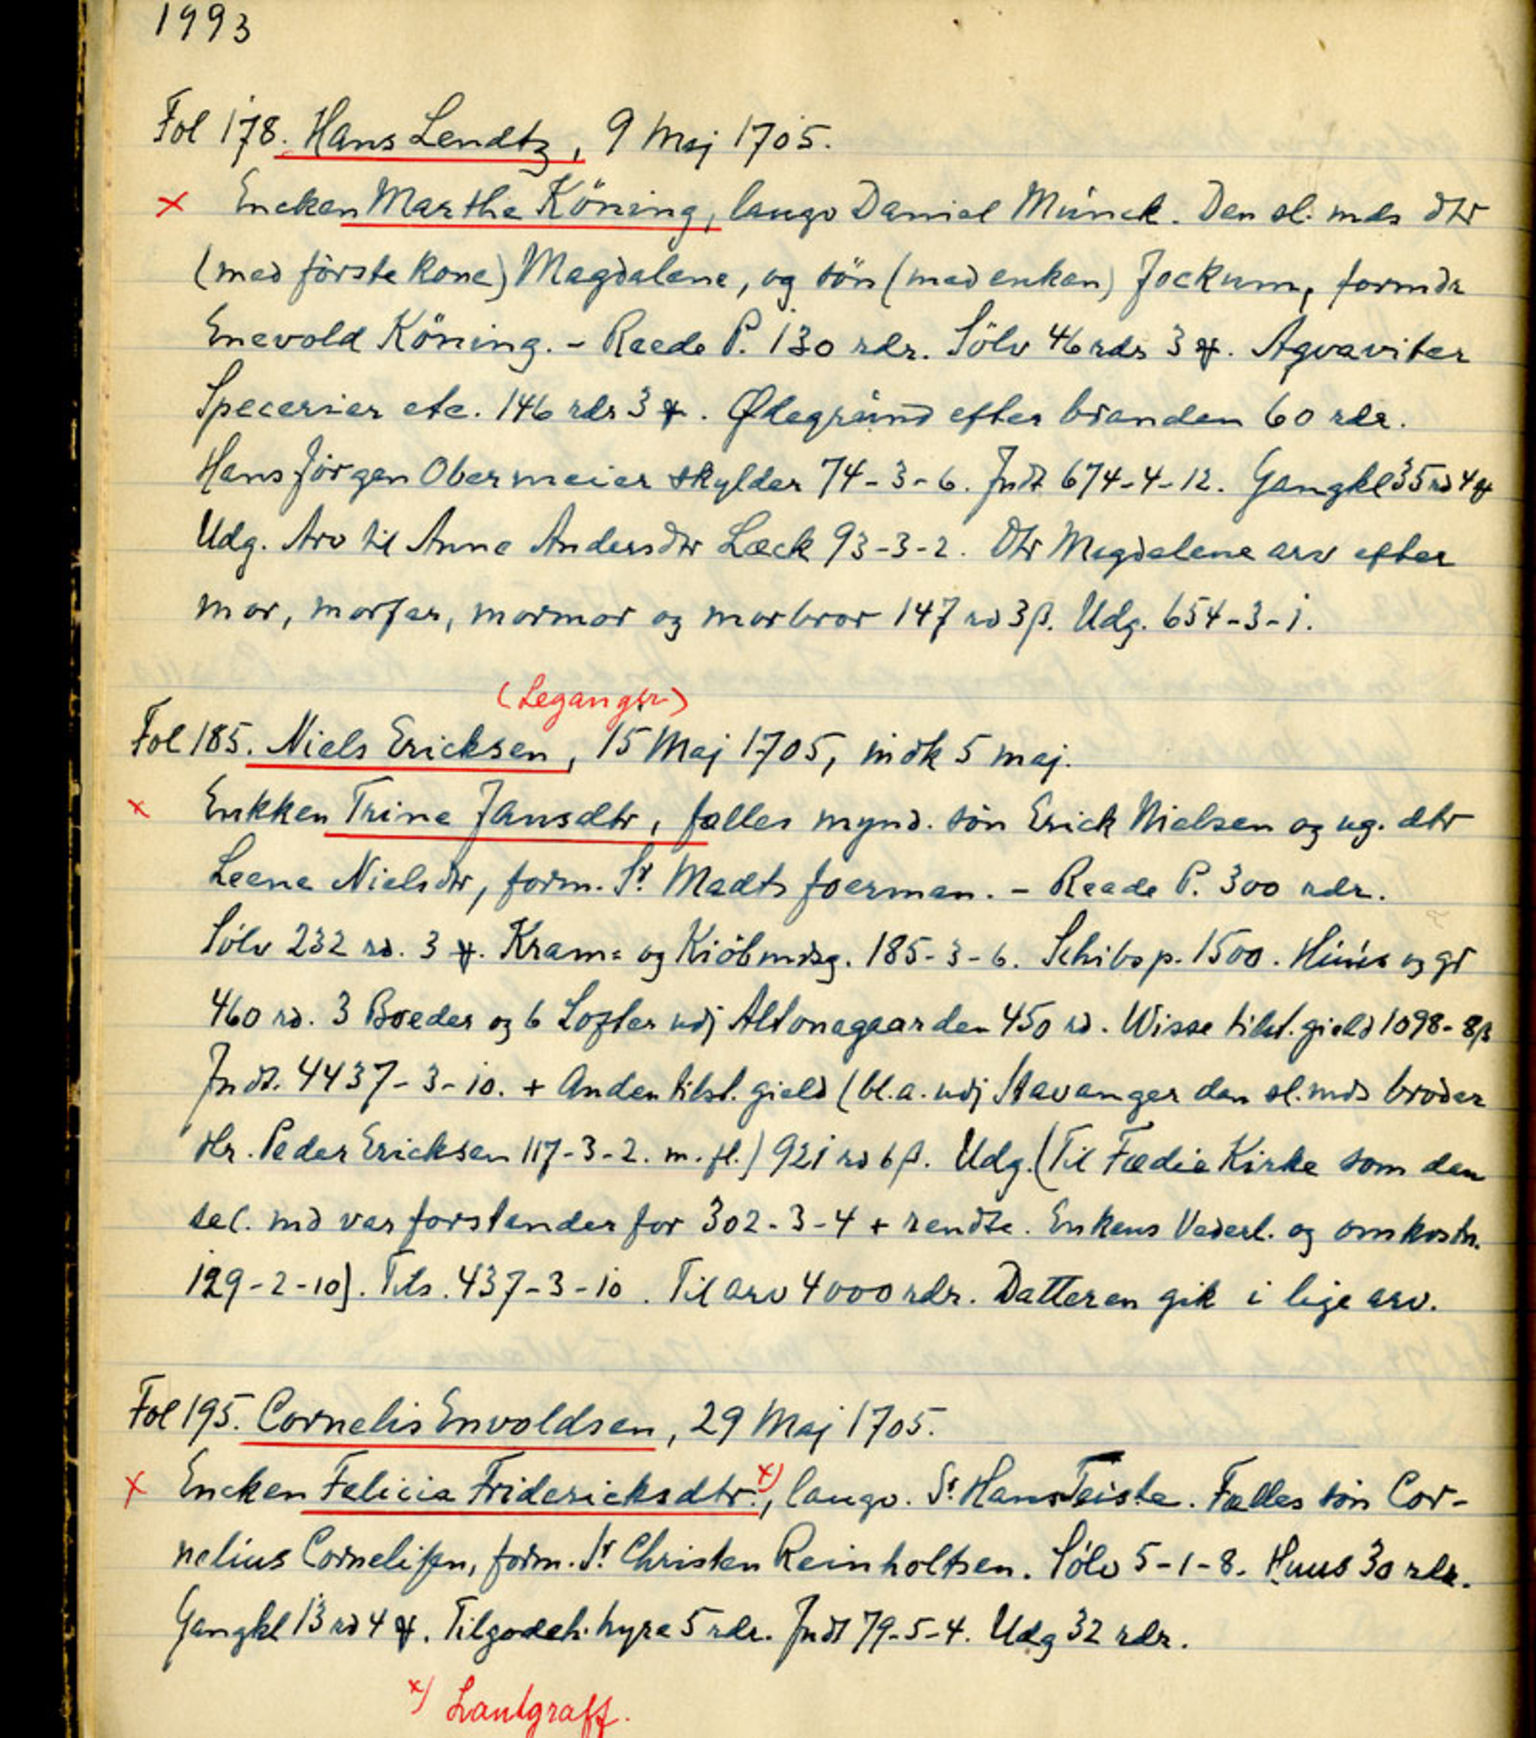 1993
Fol 178. Hans Lendtz, 9 Maj 1705.
x Encken Marthe Köning, laugv Daniel Münck. Den sl. mds dtr
(med förste kone) Magdalene, og sön (med enkan) Jockum, formdr
Enevold Köning. - Reede P. 130 rdr. Sölv 46 rdr 3 ꝟ. Aqvaviter
Specerier etc. 146 rdr 3 ꝟ. Ødegründ efter branden 60 rdr.
Hans Jörgen Obermeier skylder 74-3-6. Indt 674-4-12. Gangkl 35 rd 4 ꝟ
Udg. Arv til Anne Andersdtr Læck 93-3-2. Dtr Magdalene arv efter
mor, morfar, mormor og morbror 147 rd 3 β. Udg. 654-3-1.
(Leganger)
Fol 185. Niels Ericksen, 15 Maj 1705, indk 5 maj.
x Enkken Trine Jansdtr, fælles mynd. sön Erick Nielsen og ug. dtr
Leene Nielsdtr, form. Sr Madts foerman. - Reede P. 300 rdr.
Sölv 232 rd. 3 ꝟ. Kram= og Kiöbmdsg. 185-3-6. Schibsp. 1500. Hüüs og gr
460 rd. 3 Boeder og 6 Lofter udj Altonagaarden 450 rd. Wisse tilst. gield 1098-8β
Indt. 4437-3-10. + Anden tilst. gield (bl.a. udj Stavanger den sl. mds broder
Hr. Peder Ericksen 117-3-2. m. fl.) 921 rd 6 β. Udg. (Til Fædie Kirke som den
sel. md var forstander for 302-3-4 + rendte. Enkens Vederl. og omkostn.
129-2-10). Tils. 437-3-10. Til arv 4000 rdr. Datteren gik i lige arv.
Fol 195. Cornelis Envoldsen, 29 Maj 1705.
x Encken Felicia Fridericksdtr. x), laugv. Sr Hans Teiste. Fælles sön Cor-
nelius Cornelißen, form. Sr Christen Reinholtsen. Sölv 5-1-8. Huus 30 rdr.
Gangkl 13 rd 4 ꝟ. Tilgodeh. hyre 5 rdr. Indt 79-5-4. Udg 32 rdr.
x) Lantgraff.